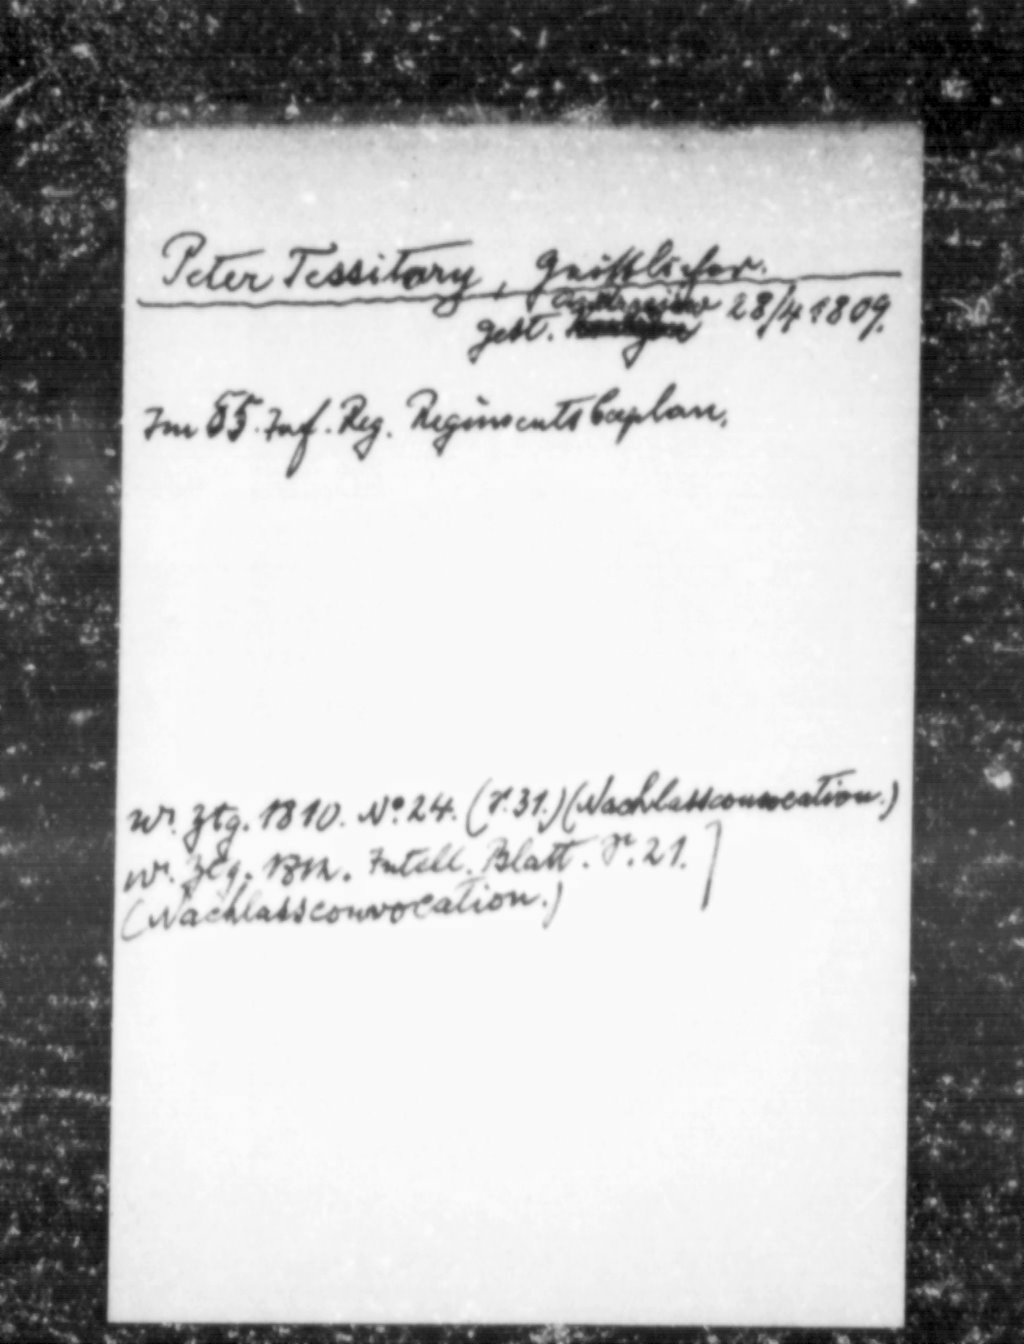 Peter Tessitory, Geistlicher.
gest. 28/4 1809.
Im 55. Inf. Reg. Regimentscaplan.
Wr. Ztg. 1810. No. 24. (S. 31.) (Nachlassconvocation.)
Wr. Ztg. 1812. Intell. Blatt. S. 21.
(Nachlassconvocation.)